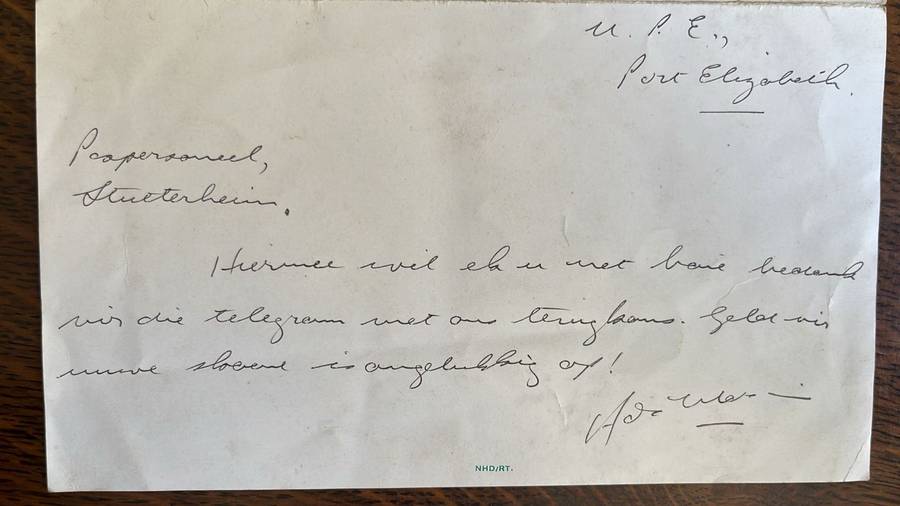 U. P. E.,
Port Elizabeth.
Stutterheim.
Hiermee wil ek u net baie bedank
vir die telegram met ons terugkoms. Geld vir
nuwe skoene is ongelukkig op!
NHD/RT.